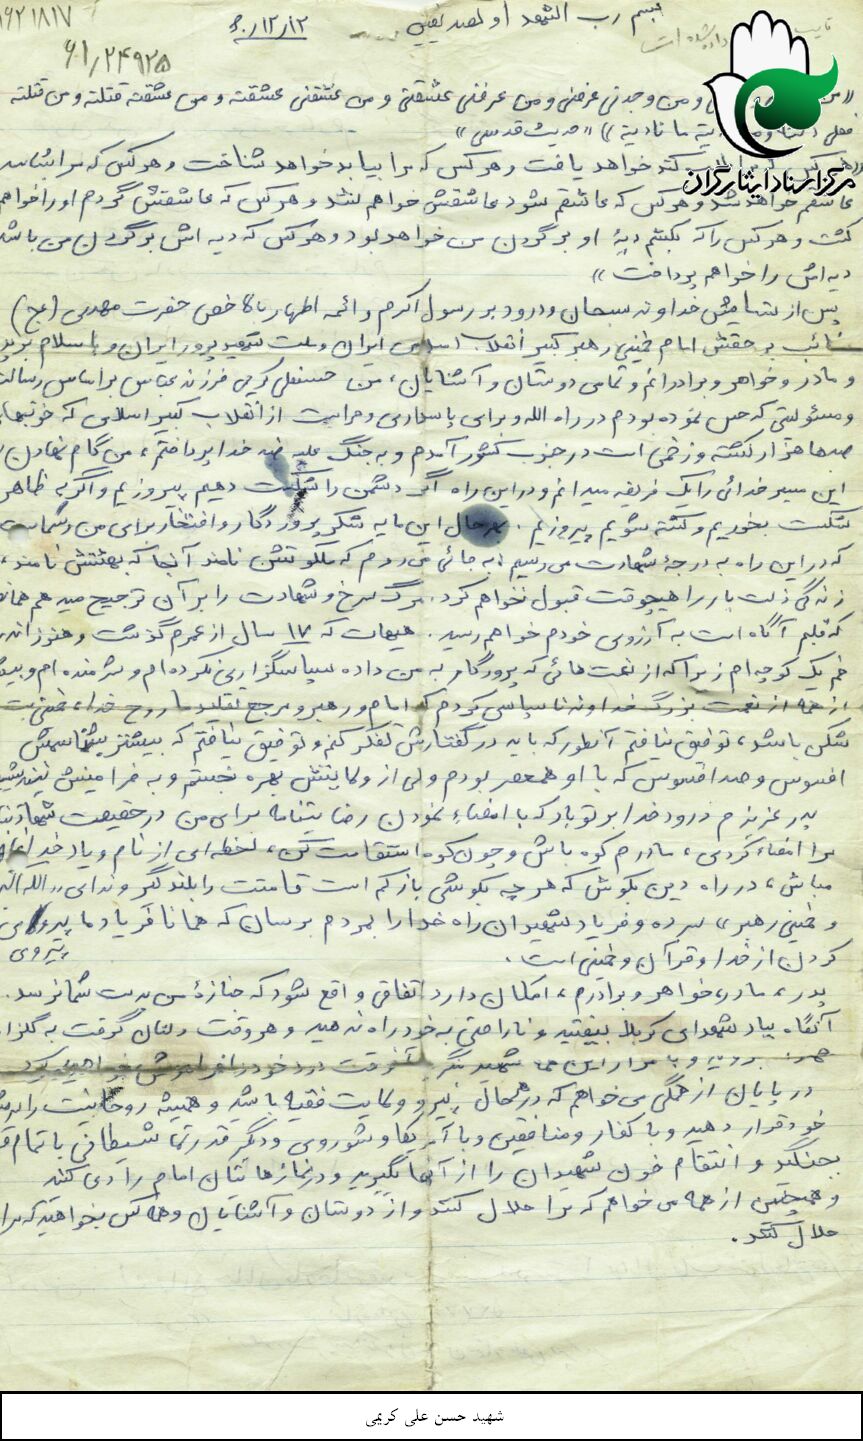 بسم رب الشهداء و الصدیقین
۶۰/۱۲/۱۲
۱۶۲۱۸۱۷
۶۱/۲۴۹۲۵
تایپ
داده شده است
مرکز اسناد ایثارگران
و من وجدنی عرفنی و من عرفنی عشقنی و من عشقنی عشقته و من عشقته قتلته و من قتلته
فعلی دیته و من دیته فانا دیته )) «حدیث قدسی»
کند خواهد یافت و هر کس که مرا بیابد خواهد شناخت و هر کس که مرا بشناسد
عاشقم خواهد شد و هر کس که عاشقم شود عاشقش خواهم شد و هر کس که عاشقش گردم او را خواهم
کشت و هر کس را که بکشم دیۀ او بر گردن من خواهد بود و هر کس که دیه اش بر گردن من باشد
دیه اش را خواهم پرداخت ))
پس از ستایش خداوند سبحان و درود بر رسول اکرم و ائمه اطهار بالاخص حضرت مهدی (عج)
نائب بر حقش امام خمینی رهبر کبیر انقلاب اسلامی ایران و ملت شهید پرور ایران و با سلام بر پدر
و مادر و خواهر و برادرانم و تمامی دوستان و آشنایان، من حسنعلی کریمی فرزند عباس بر اساس رسالت
و مسئولیتی که حس نموده بودم در راه الله و برای پاسداری و حراست از انقلاب کبیر اسلامی که خونبهای
صدها هزار کشته و زخمی است در جنوب کشور آمدم و به جنگ علیه ضد خدا پرداختم، من گام نهادن
این مسیر خدائی را یک فریضه میدانم و در این راه اگر دشمن را شکست دهیم پیروزیم و اگر به ظاهر
شکست بخوریم و کشته شویم پیروزیم. بهر حال این مایه شکر پروردگار و افتخار برای من و شماست
که در این راه به درجۀ شهادت می رسیم، به جائی می روم که ملکوتش نامند آنجا که بهشتش نامند،
زندگی ذلت بار را هیچوقت قبول نخواهم کرد. مرگ سرخ و شهادت را بر آن ترجیح میدهم همانا
که قلبم آگاه است به آرزوی خودم خواهم رسید. هیهات که ۱۷ سال از عمرم گذشت و هنوز اندر
خم یک کوچه ام زیرا که از نعمت هائی که پروردگار به من داده سپاسگزاری نکرده ام و شرمنده ام و بیش
از همه از نعمت بزرگ خداوند ناسپاسی کردم که امام و رهبر و مرجع تقلید ما روح خدا، خمینی بت
شکن باشد، توفیق نیافتم آنطور که باید در گفتارش تفکر کنم و توفیق نیافتم که بیشتر بشناسمش
افسوس و صد افسوس که با او همعصر بودم ولی از ولایتش بهره نجستم و به فرامینش
پدر عزیزم درود خدا بر تو باد که با امضاء نمودن رضایتنامه برای من در حقیقت شهادتنامه
مرا امضاء کردی، مادرم کوه باش و چون کوه استقامت کن، لحظه ای از نام و یاد خدا غافل
مباش، در راه دین بکوش که هر چه بکوشی باز کم است قامتت را بلند گیر و ندای ((الله اکبر
و خمینی رهبر)) سر ده و فریاد شهیدان راه خدا را بمردم برسان که همانا فریاد ما پیروی
کردن از خدا و قرآن و خمینی است.
پیروی
پدر، مادر، خواهر و برادرم، امکان دارد اتفاقی واقع شود که جنازۀ من بدست شما نرسد.
آنگاه بیاد شهدای کربلا بیفتید و ناراحتی به خود راه ندهید و هر وقت دلتان گرفت به گلزار
شهدا بروید و با مزار این همه شهید دیگر آنوقت درد خود را فراموش خواهید کرد
در پایان از همگی می خواهم که در همه حال پیرو ولایت فقیه باشید و همیشه روحانیت را
خود قرار دهید و با کفار و منافقین و با آمریکا و شوروی و دیگر قدرتهای شیطانی با تمام
بجنگید و انتقام خون شهیدان را از آنها بگیرید و در نمازهایتان امام را دعا کنید
و همچنین از همه می خواهم که مرا حلال کنند و از دوستان و آشنایان و همه کس بخواهید که مرا
حلال کنند.
شهید حسن علی کریمی